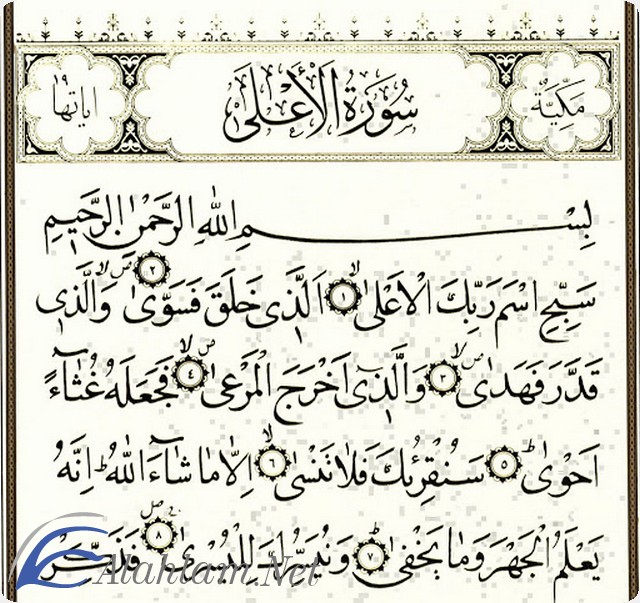 مَكِّيَّةٌ سُورَةُ الْأَعْلَىٰ اٰيَاتُهَا ١٩
بِسْمِ اللّٰهِ الرَّحْمٰنِ الرَّحِيمِ
سَبِّحِ اسْمَ رَبِّكَ الْاَعْلٰىۙ ﴿١﴾ اَلَّذ۪ي خَلَقَ فَسَوّٰىۙۖ ﴿٢﴾ وَالَّذ۪ي
قَدَّرَ فَهَدٰىۙۖ ﴿٣﴾ وَالَّذ۪ٓي اَخْرَجَ الْمَرْعٰىۙۖ ﴿٤﴾ فَجَعَلَهُ غُثَٓاءً
اَحْوٰىۜ ﴿٥﴾ سَنُقْرِئُكَ فَلَا تَنْسٰىۙ ﴿٦﴾ اِلَّا مَا شَٓاءَ اللّٰهُۜ اِنَّهُ
يَعْلَمُ الْجَهْرَ وَمَا يَخْفٰىۜ ﴿٧﴾ وَنُيَسِّرُكَ لِلْيُسْرٰىۚۖ ﴿٨﴾ فَذَكِّرْ
Alahlam.Net